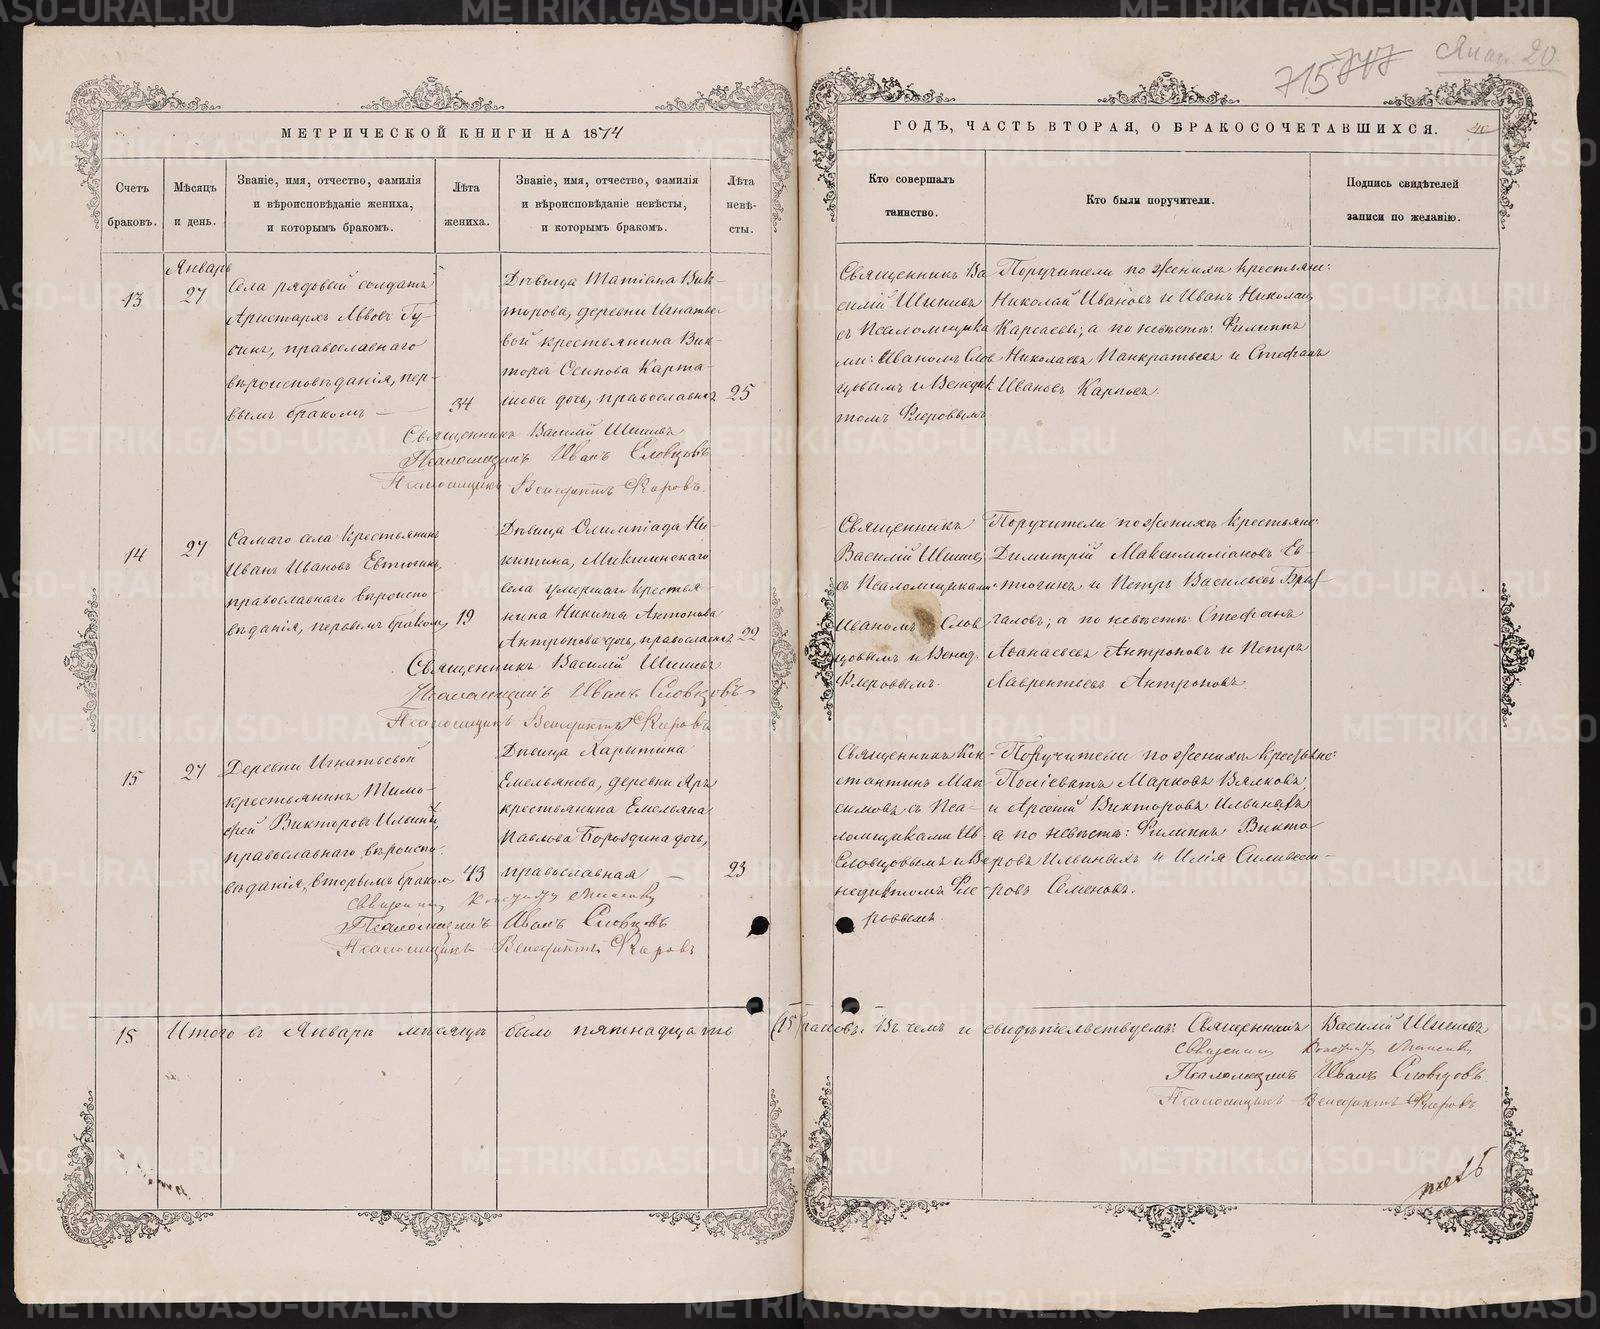 МЕТРИЧЕСКОЙ КНИГИ НА 1874
Счетъ браковъ.
Мѣсяцъ и день.
Званіе, имя, отчество, фамилія
и вѣроисповѣданіе жениха,
и которымъ бракомъ.
Лѣта
жениха.
Званіе, имя, отчество, фамилія
и вѣроисповѣданіе невѣсты,
и которымъ бракомъ.
Лѣта
невѣ-
сты.
13
Январь
27
Села рядовый солдатъ
Аристархъ Львовъ
православнаго
вѣроисповѣданія, пер-
вымъ бракомъ —
34
Дѣвица Татіана Вик-
торова, деревни Игнатье
вой крестьянина Вик-
тора Осипова Карта-
шева дочь, православная
25
Священникъ Василій Шишевъ
Псаломщикъ Иванъ Словцовъ
Псаломщикъ Венедиктъ Флеровъ.
14
27
Самаго села крестьянинъ
Иванъ Ивановъ Евтюгинъ,
православнаго вѣроиспо-
вѣданія, первымъ бракомъ,
19
Дѣвица Олимпіада Ни-
китина, Микшинскаго
села умершаго крестья-
нина Никиты Антонова
Антропова дочь, православная
22
Священникъ Василій Шишевъ
Псаломщикъ Иванъ Словцовъ
Псаломщикъ Венедиктъ Флеровъ
15
27
Деревни Игнатьевой
крестьянинъ Тимо-
фей Викторовъ Ильиныхъ,
православнаго вѣроиспо-
вѣданія, вторымъ бракомъ
43
Дѣвица Харитина
Емельянова, деревни Яръ
крестьянина Емельяна
Павлова Бороздина дочь,
православная —
23
Псаломщикъ Иванъ Словцовъ
Псаломщикъ Венедиктъ Флеровъ
15 Итого въ Январѣ мѣсяцѣ было пятнадцать
ГОДЪ, ЧАСТЬ ВТОРАЯ, О БРАКОСОЧЕТАВШИХСЯ.
715
20
Кто совершалъ
таинство.
Кто были поручители.
Подпись свидѣтелей
записи по желанію.
Священникъ Ва
силій Шишевъ
съ Псаломщика
ми: Иваномъ Слов
цовымъ и Венедик
томъ Флеровымъ.
Поручители по женихѣ крестьяне:
Николай Ивановъ и Иванъ Николаевъ
Карсаевы; а по невѣстѣ: Филиппъ
Николаевъ Панкратьевъ и Стефанъ
Ивановъ Карповъ.
Священникъ
Василій Шишевъ
съ Псаломщиками
Иваномъ Слов
цовымъ и Венед.
Флеровымъ.
Поручители по женихѣ крестьяне:
Димитрій Максимиліановъ Ев-
тюгинъ и Петръ Васильевъ
а по невѣстѣ: Стефанъ
Аѳанасьевъ Антроповъ и Петръ
Лаврентьевъ Антроповъ
Священникъ Кон-
стантинъ Мак
симовъ съ Пса-
ломщиками Ив.
Словцовымъ и Ве
недиктомъ Фле-
ровымъ.
Поручители по женихѣ крестьяне:
Поліевктъ Марковъ Вялковъ,
и Арсеній Викторовъ Ильиныхъ
а по невѣстѣ: Филиппъ Викто
ровъ Ильиныхъ и Илія Силивест-
ровъ Семеновъ.
(15) браковъ. Въ чемъ и свидѣтельствуемъ: Священникъ Василій Шишевъ
Псаломщикъ Иванъ Словцовъ
Псаломщикъ Венедиктъ Флеровъ